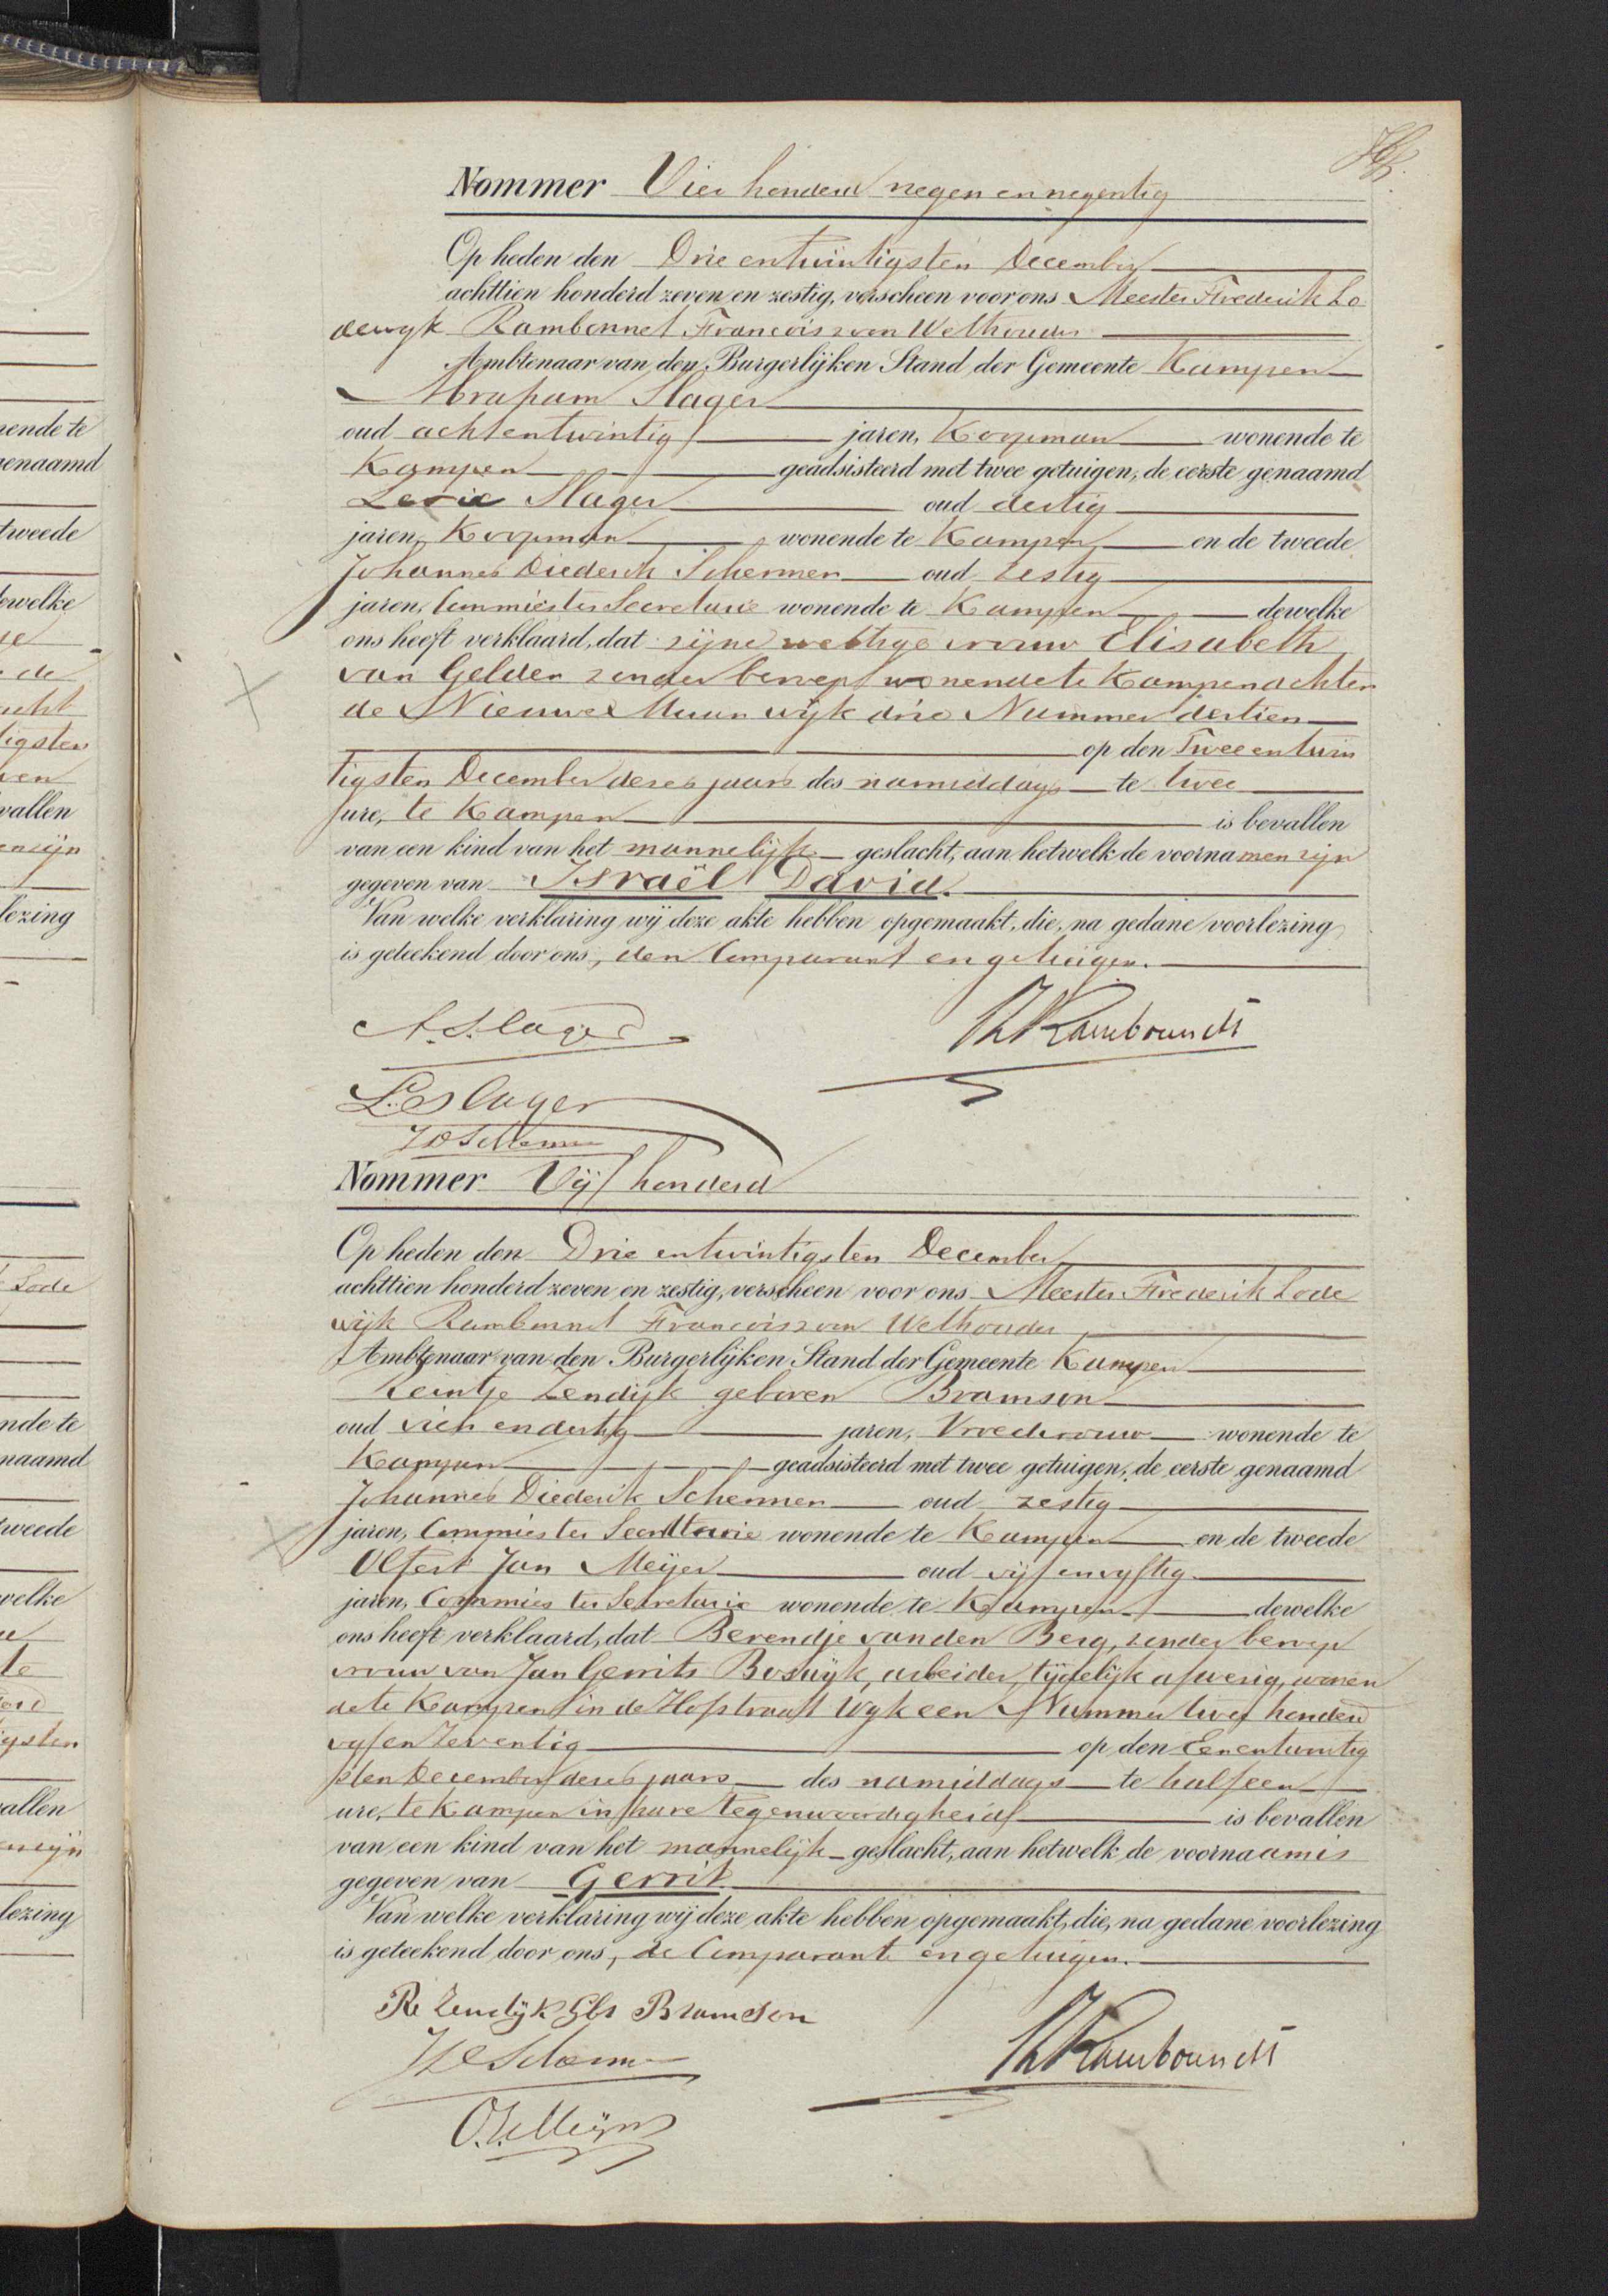 Nommer Vier honderd negen en negentig
Op heden den Drie entwintigsten December
achttien honderd zeven en zestig, verscheen voor ons Meester Frederik Lo
dewyk Rambonnet Franciszoon Wethouder
Ambtenaar van den Burgerlijken Stand der Gemeente Kampen
Abraham Slager
oud achtentwintig jaren, Koopman wonende te
Kampen geädsisteerd met twee getuigen, de eerste genaamd
Levie Slager oud dertig
jaren, Koopman wonende te Kampen en de tweede
Johannes Diederik Schermer oud zestig
jaren, Commies ter Secretarie wonende te Kampen dewelke
ons heeft verklaard, dat zijne wettige vrouw Elisabeth
van Gelder zonder beroep wonende te Kampen achter
de Nieuwe Muur wijk drie Nummer dertien
op den Twee entwin
tigsten December dezes jaars des namiddags te twee
ure, te Kampen is bevallen
van een kind van het mannelijk geslacht, aan hetwelk de voornamen zijn
gegeven van Israël David.
Van welke verklaring wij deze akte hebben opgemaakt, die, na gedane voorlezing
is geteekend door ons, den Comparant en getuigen.
A. Slager
Rambonnet
L. Slager
JD Schermer
Nommer Vijf honderd
Op heden den Drie entwintigsten December
achttien honderd zeven en zestig, verscheen voor ons Meester Frederik Lode
wijk Rambonnet Franciszoon Wethouder
Ambtenaar van den Burgerlijken Stand der Gemeente Kampen
Reintje Zendijk geboren Bramson
oud vier en dertig jaren, Vroedvrouw wonende te
Kampen geadsisteerd met twee getuigen, de eerste genaamd
Johannes Diederik Schermer oud zestig
jaren, Commies ter Secretarie wonende te Kampen en de tweede
Olfert Jan Meijer oud vijf envyftig
jaren, Commies ter Secretarie wonende te Kampen dewelke
ons heeft verklaard, dat Berendje van den Berg, zonder beroep
vrouw van Jan Gerrits Boswijk, arbeider, tijdelijk afwezig, wonen
de te Kampen in de Hofstraat Wyk een Nummer twee honderd
vyf en Zeventig op den Eenentwintig
sten December dezes jaars des namiddags te half een
ure, te Kampen in hare tegenwoordigheid is bevallen
van een kind van het mannelijk geslacht, aan hetwelk de voornaam is
gegeven van Gerrit.
Van welke verklaring wij deze akte hebben opgemaakt, die, na gedane voorlezing
is geteekend door ons, de Comparante en getuigen.
R. Zendijk Gbr Bramson
Rambonnet
JD Schermer
O.J. Meijer